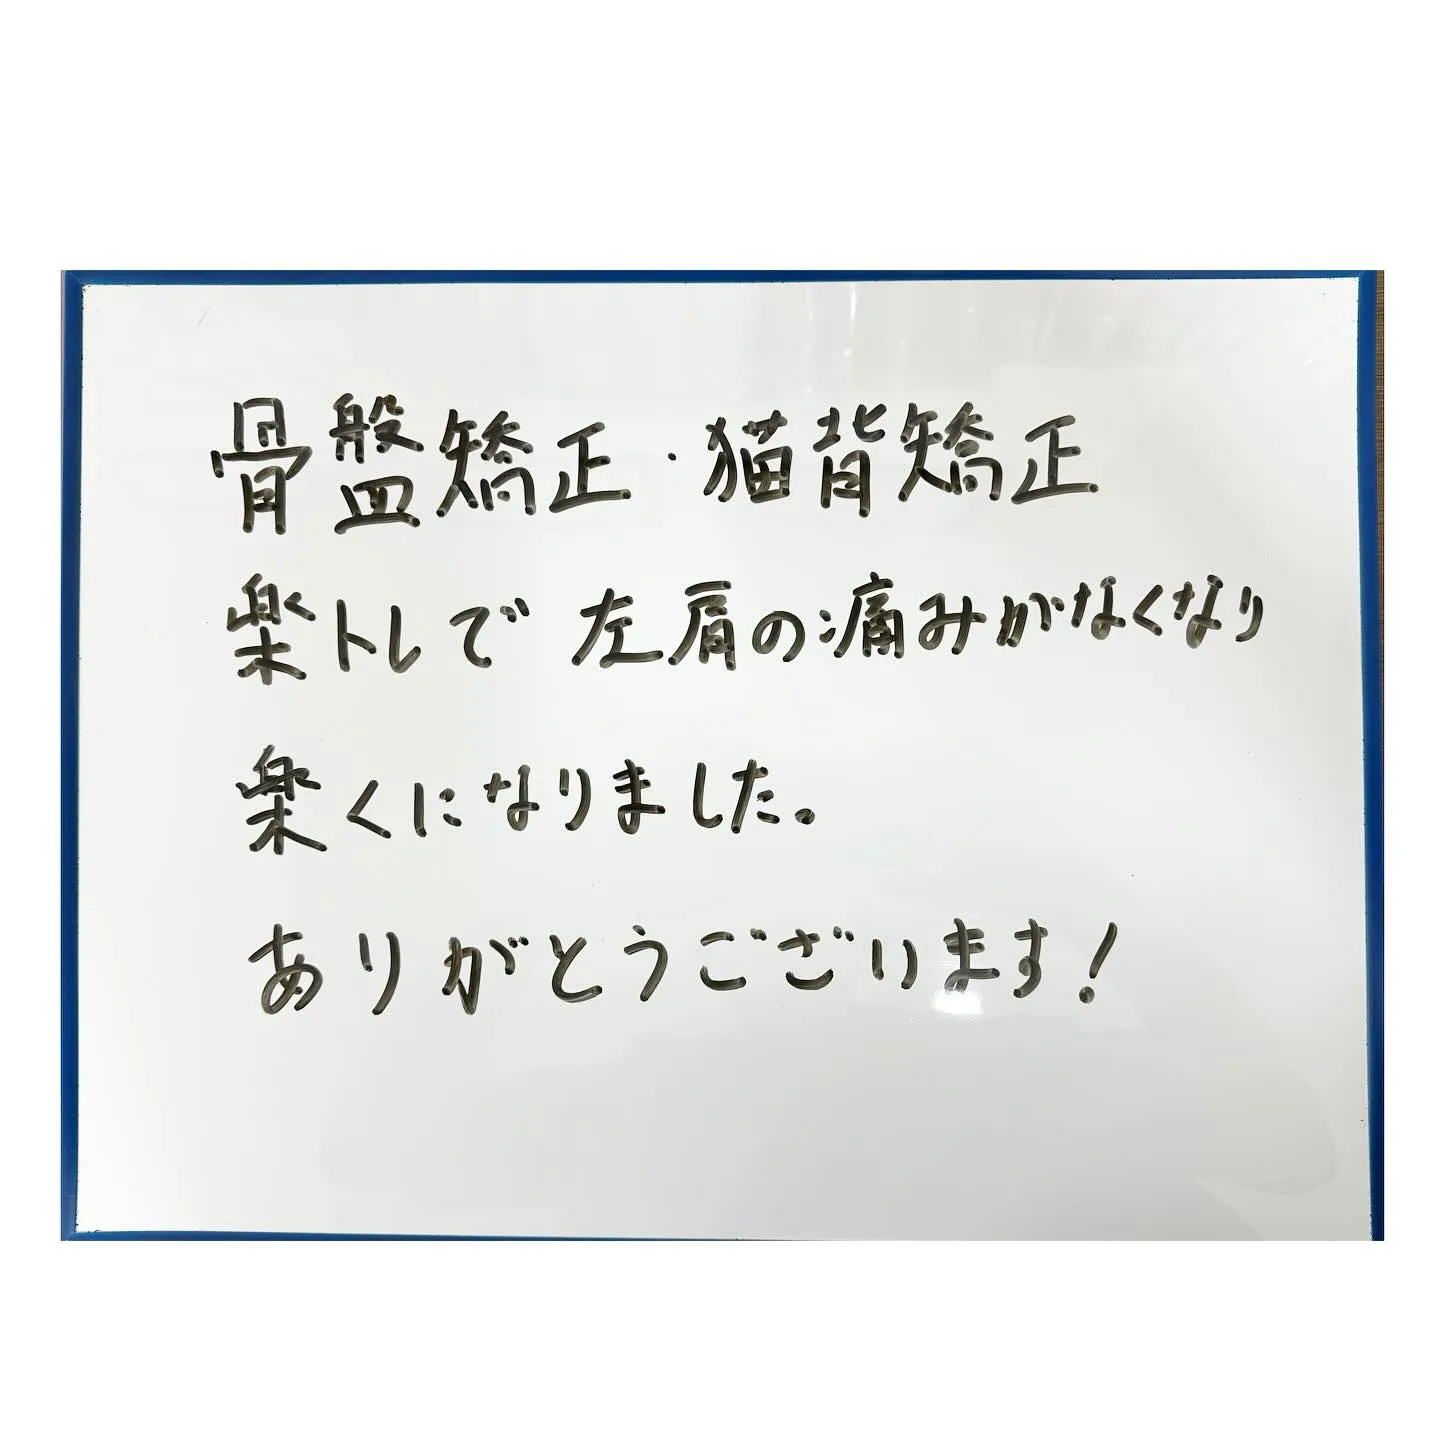 骨盤矯正・猫背矯正
楽トレで 左肩の痛みがなくなり
楽くになりました。
ありがとうございます!